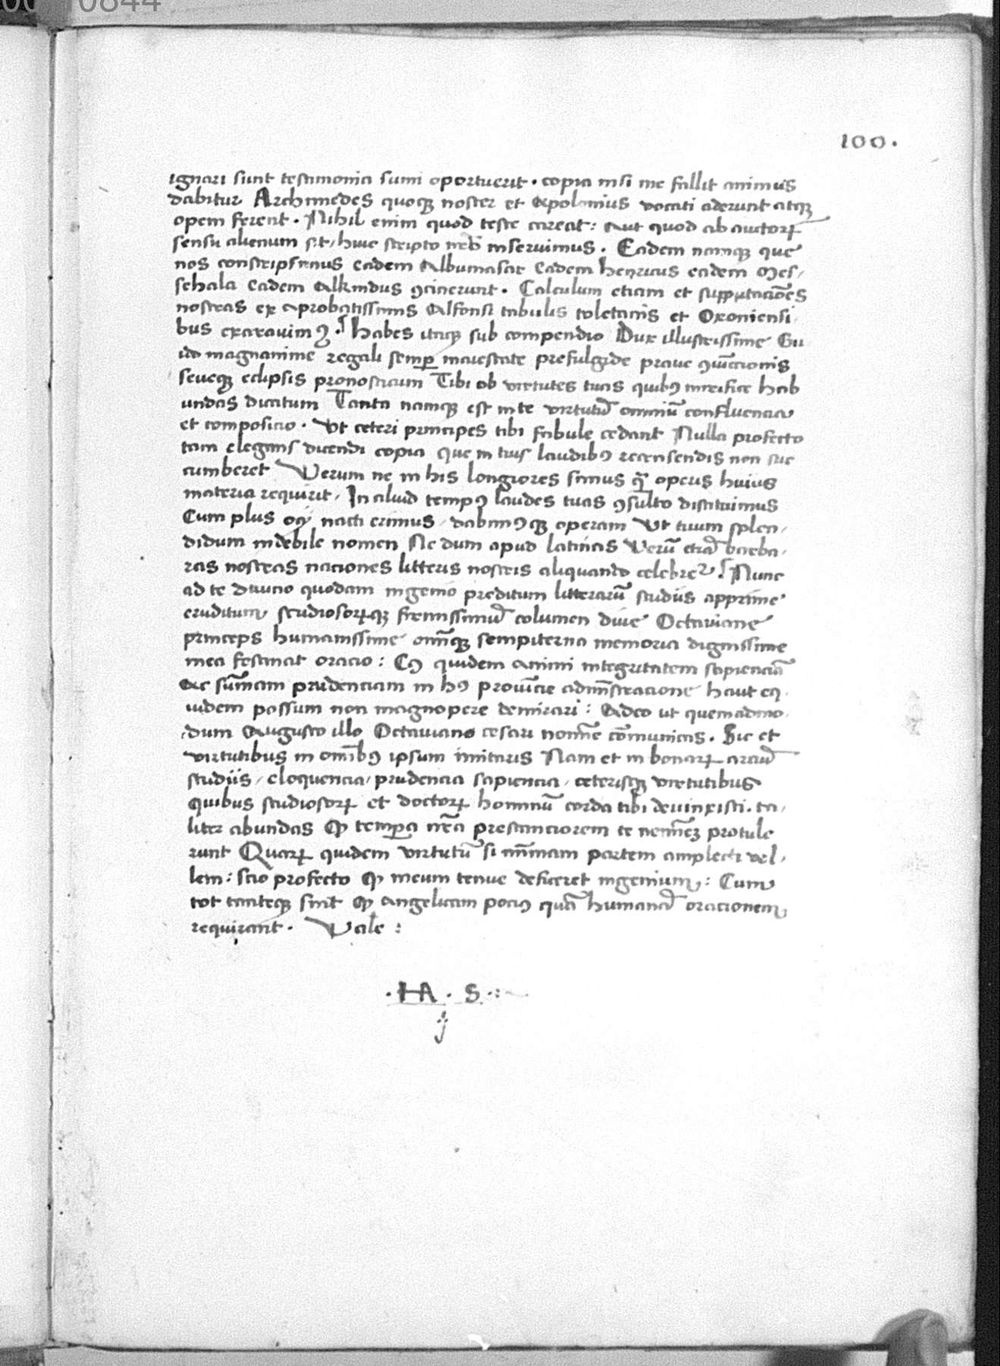 100.
ignari sunt testimonia sumi oportuerit. copia nisi me fallit animus
dabitur Archimedes quoqꝫ noster et Apolonius vocati aderunt atqꝫ
opem ferent. Nihil enim quod teste careat: Aut quod ab auctorꝝ
sensu alienum sit, huic scripto nr̄o inseruimus. Eadem namqꝫ que
nos conscripsimus Eadem Albumasar Eadem henricus eadem Mes,
sehala Eadem Alkindus ꝯcinerunt. Calculum etiam et supputacio͞es
nostras ex aprobatissimis Alfonsi tabulis toletanis et Oxoniensi,
bus exarauimꝰ. Habes itaqꝫ sub compendio Dux illustrissime Gu
ido magnanime regali semꝑ maiestate prefulgide praue
seueqꝫ eclipsis pronosticum Tibi ob virtutes tuas quibꝰ mirifice hab
undas dicatum Tanta namqꝫ est in te virtutū omniū confluencia
et composicio. Vt ceteri principes tibi fabule cedant Nulla profecto
tam elegans dicendi copia que in tuis laudibꝰ recensendis non suc
cumberet Verum ne in his longiores simus ꝙ̄ operis huius
materia requirit, In aliud tempꝰ laudes tuas ꝯsulto distituimus
Cum plus ocij nacti erimus, dabimꝰqꝫ operam Vt tuum splen,
didum indebile nomen Ne dum apud latinas Verū etiā barba,
ras nostras naciones litteris nostris aliquando celebret Nunc
ad te diuino quodam ingenio preditum litterarū studiis apprime
eruditum, studiosorꝝqꝫ firmissimū columen diue Octauiane
princeps humanissime om̄iqꝫ sempiterna memoria dignissime
mea festinat oracio: Cuꝰ quidem animi integritatem sapienciā
Ac sum̄am prudenciam in hꝰ prouincie adm̄istracione haut eq,
uidem possum non magnopere demirari: Adeo ut quemadmo,
dum Augusto illo Octauiano cesari nomine com̄unicas. Sic et
virtutibus in om̄ibꝰ ipsum imitaris Nam et in bonarꝝ arciū
studiis, eloquencia, prudencia sapiencia, ceterisqꝫ virtutibus
Quibus studiosorꝝ et doctorꝝ hominū corda tibi deuinxisti. ta,
liter abundas ꝙ tempora nr̄a prestanciorem te neminēqꝫ protule
runt Quarꝝ quidem virtutū si mīmam partem amplecti vel,
lem: scio profecto ꝙ meum tenue deficeret ingenium: Cum
tot tanteqꝫ sint ꝙ Angelicam pocius quā humanā oracionem
requirant. Vale:
.HA. S.